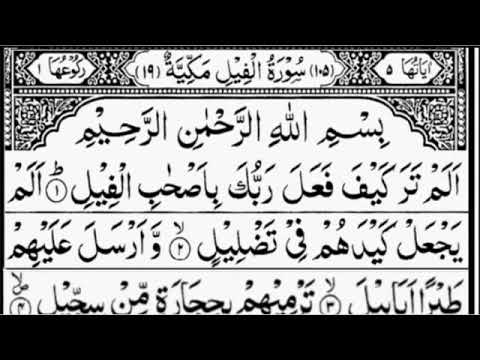 اٰيَاتُهَا ٥ (١٠٥) سُوْرَةُ الْفِيْلِ مَكِّيَّةٌ (١٩) رُكُوْعُهَا ١
بِسْمِ اللّٰهِ الرَّحْمٰنِ الرَّحِيْمِ
اَلَمْ تَرَ كَيْفَ فَعَلَ رَبُّكَ بِاَصْحٰبِ الْفِيْلِ ؕ ١ اَلَمْ
يَجْعَلْ كَيْدَهُمْ فِيْ تَضْلِيْلٍ ۙ ٢ وَّ اَرْسَلَ عَلَيْهِمْ
طَيْرًا اَبَابِيْلَ ۙ ٣ تَرْمِيْهِمْ بِحِجَارَةٍ مِّنْ سِجِّيْلٍ ۪ۙ ٤